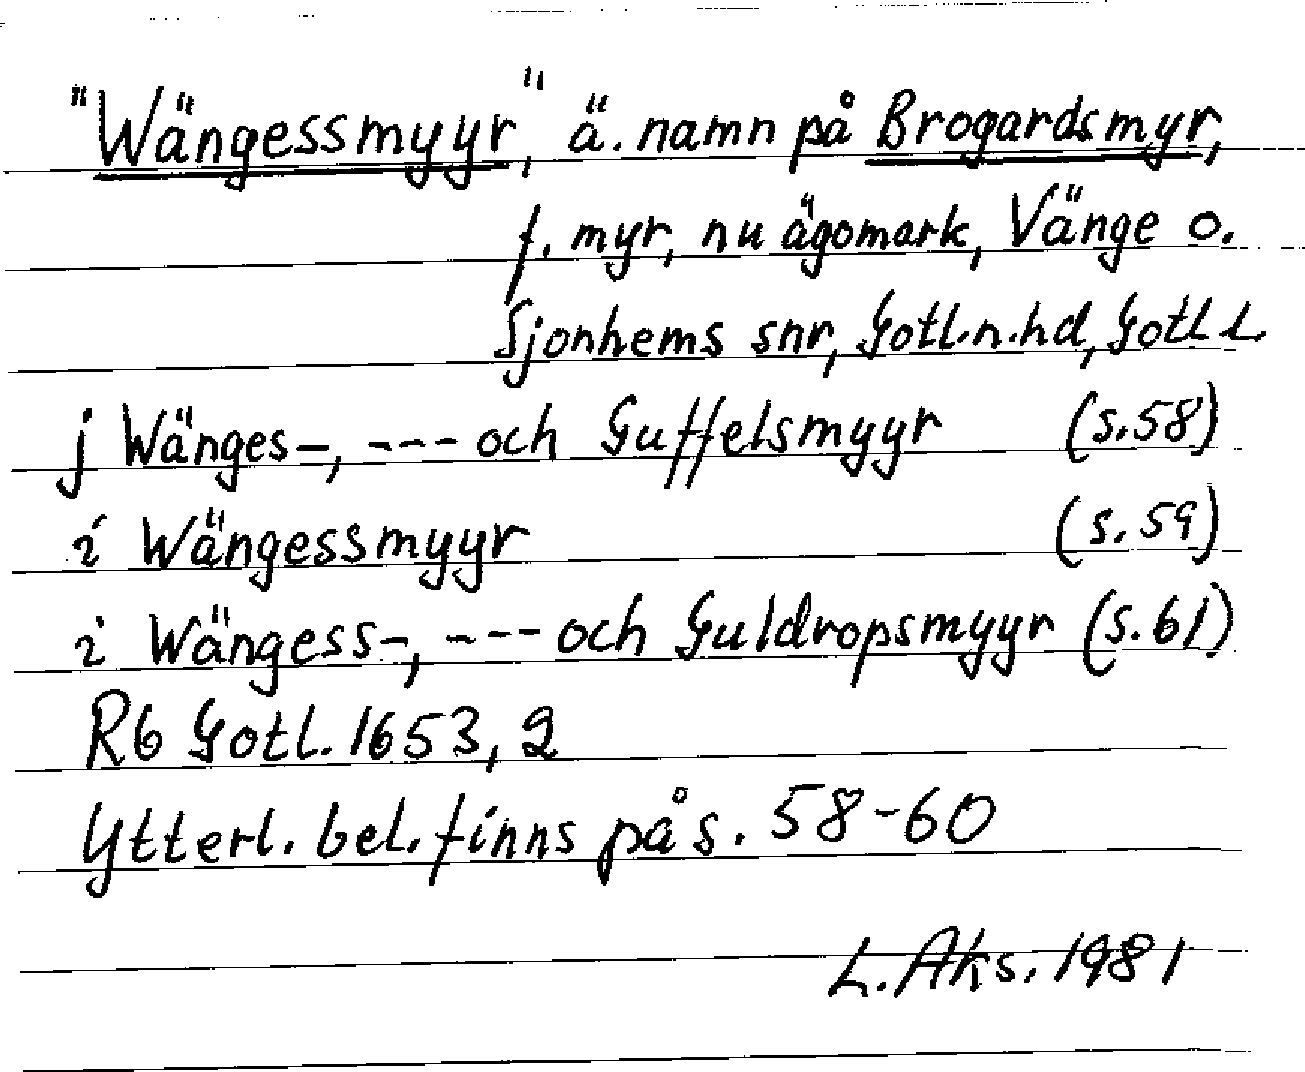 "Wängessmyyr", ä. namn på Brogardsmyr,
f. myr, nu ägomark, Vänge o.
Sjonhems snr, Gotl.n.hd, Gotl L.
j Wänges-, --- och Guffelsmyyr (s.58)
i Wängessmyyr (s.59)
i Wängess-, --- och Guldropsmyyr (s.61)
Rb Gotl. 1653, 2
Ytterl. bel. finns på s. 58-60
L. Aks. 1981